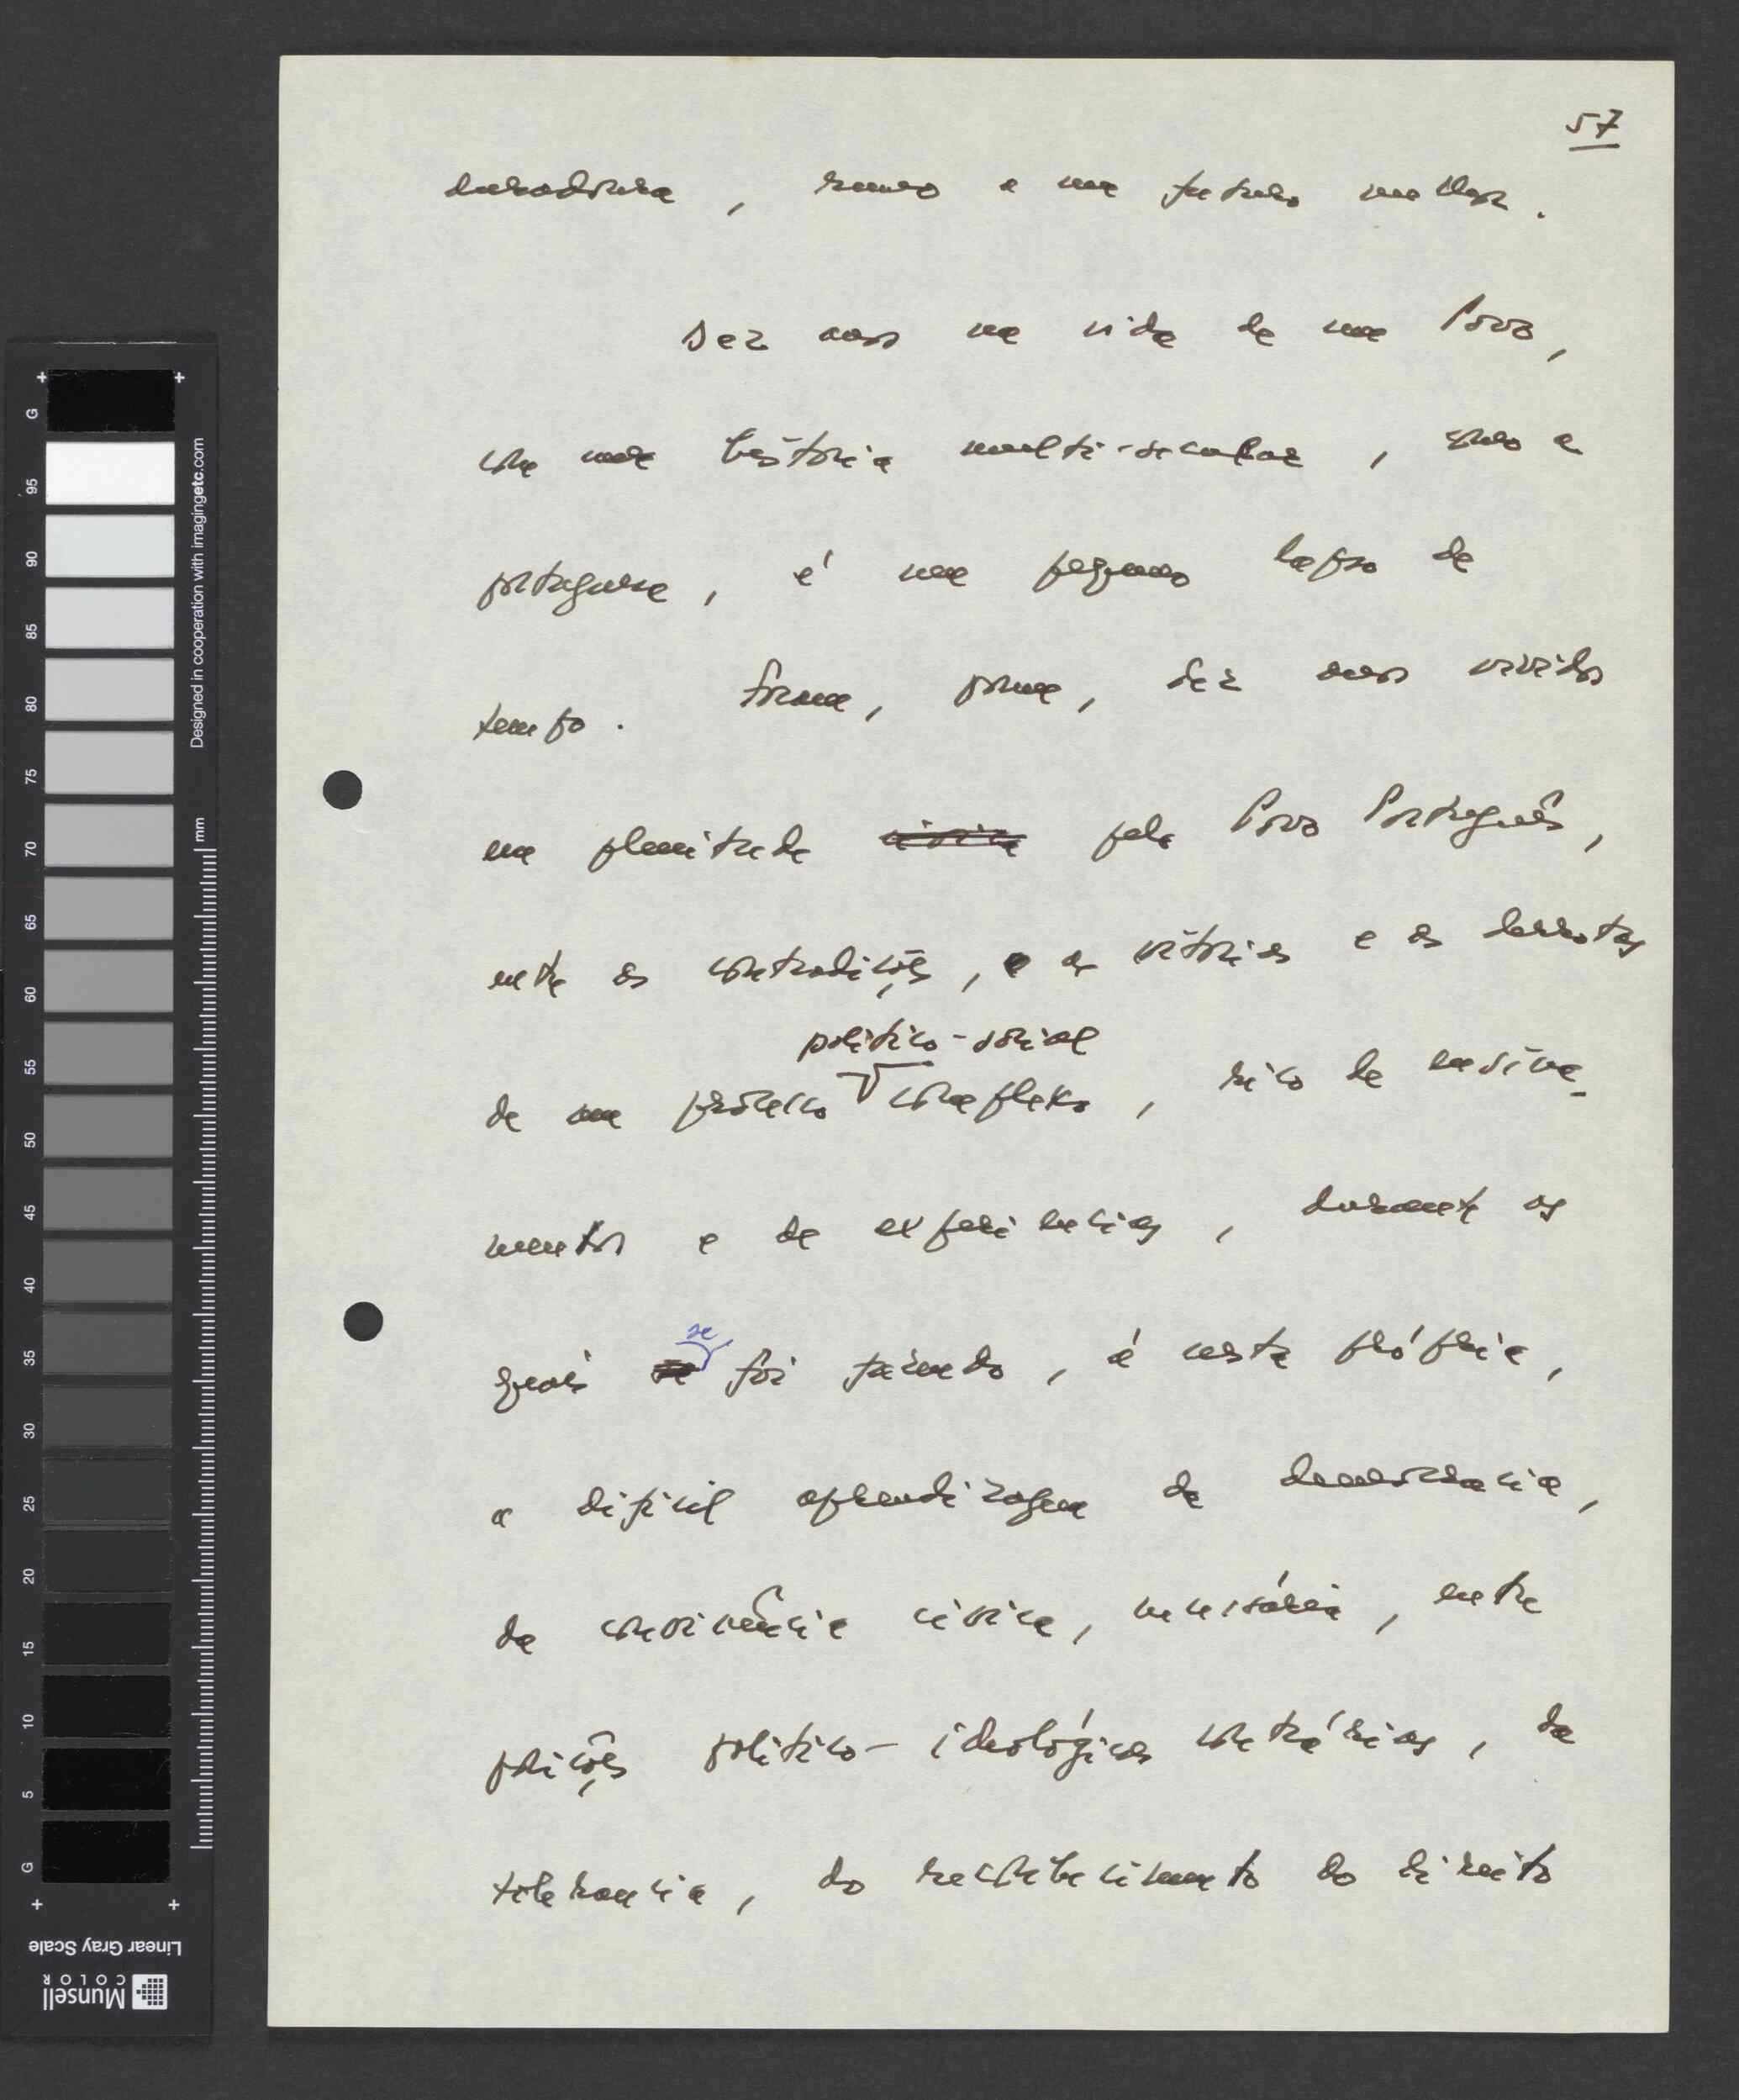 57
duradoira, rumo a um futuro melhor.
Dez anos na vida de um Povo,
com uma história multi-secular, como a
portuguesa, é um pequeno lapso de
tempo. Foram, porém, dez anos vividos
em plenitude cívica pelo Povo Português,
entre as contradições, e as vitórias e as derrotas
político-social
de um processo complexo, rico de ensina-
mentos e de experiências, durante os
se
quais se foi fazendo, a nossa própria,
a difícil aprendizagem da democracia,
da convivência cívica, necessária, entre
posições político-ideológicas contrárias, da
tolerancia, do reconhecimento do direito
G
95
90
85
80
75
70
65
60
55
50
45
40
35
30
25
20
15
10
5
G
Designed in cooperation with imagingetc.com
mm
Linear Gray Scale
Munsell
COLOR